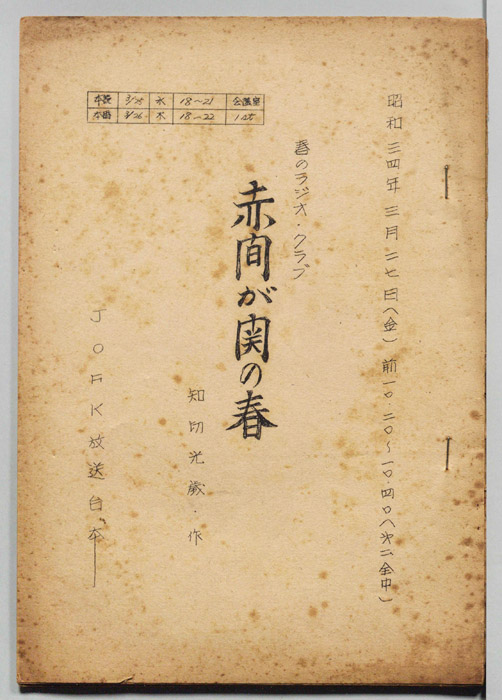 昭和三四年三月二七日(金)前一〇・二〇〜一〇・四〇(㐧二全中)
春のラジオ・クラブ
赤間が関の春
知切光歳・作
本読 3/25 水 18〜21 会議室
本番 3/26 木 18〜22
JOFK放送台本